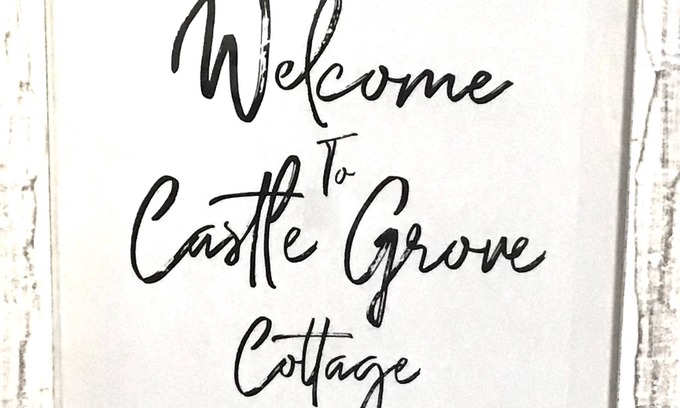 Welcome
To
Castle Grove
Cottage